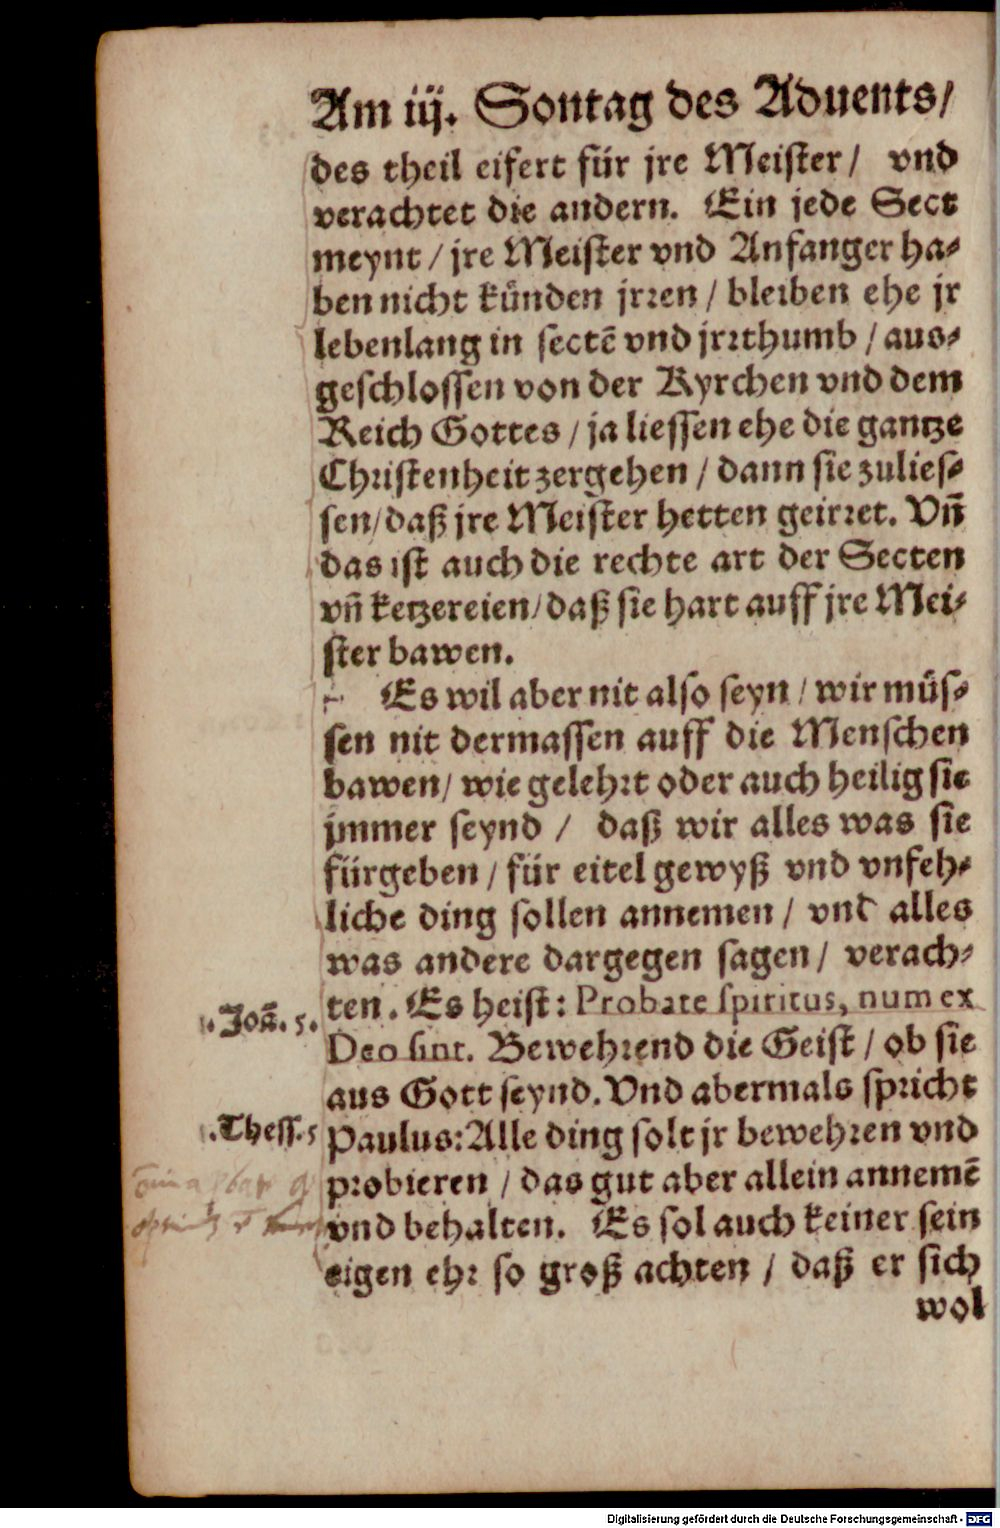 Am iij. Sontag des Aduents/
des theil eifert für jre Meister/ vnd
verachtet die andern. Ein jede Sect
meynt / jre Meister vnd Anfanger ha-
ben nicht künden jrren / bleiben ehe jr
lebenlang in sectẽ vnd jrrthumb / aus-
geschlossen von der Kyrchen vnd dem
Reich Gottes / ja liessen ehe die gantze
Christenheit zergehen / dann sie zulies-
sen/ daß jre Meister hetten geirret. Vñ
das ist auch die rechte art der Secten
vñ ketzereien/ daß sie hart auff jre Mei-
ster bawen.
Es wil aber nit also seyn / wir müs-
sen nit dermassen auff die Menschen
bawen/ wie gelehrt oder auch heilig sie
jmmer seynd / daß wir alles was sie
fürgeben / für eitel gewyß vnd vnfeh-
liche ding sollen annemen / vnd alles
was andere dargegen sagen / verach-
ten. Es heist: Probate spiritus, num ex
.Joã. 5.
Deo sint. Bewehrend die Geist / ob sie
aus Gott seynd. Vnd abermals spricht
.Thess. 5
Paulus: Alle ding solt jr bewehren vnd
probieren / das gut aber allein annemẽ
vnd behalten. Es sol auch keiner sein
eigen ehr so groß achten / daß er sich
wol
Digitalisierung gefördert durch die Deutsche Forschungsgemeinschaft - DFG